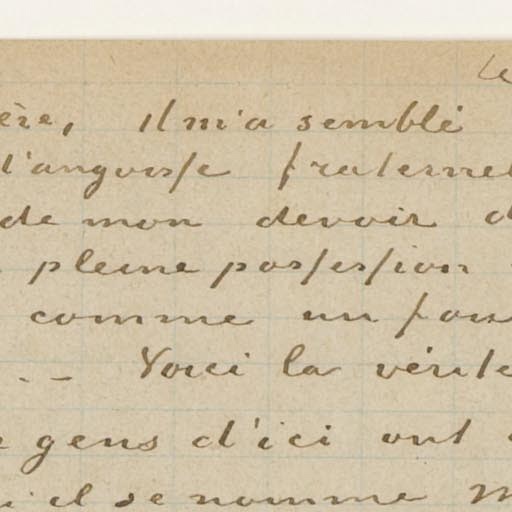 ère, il m'a semblé
l'angoisse fraternel
de mon devoir d
pleine possession
comme un fou
.. – Voici la vérité
gens d'ici ont
il se nomme M